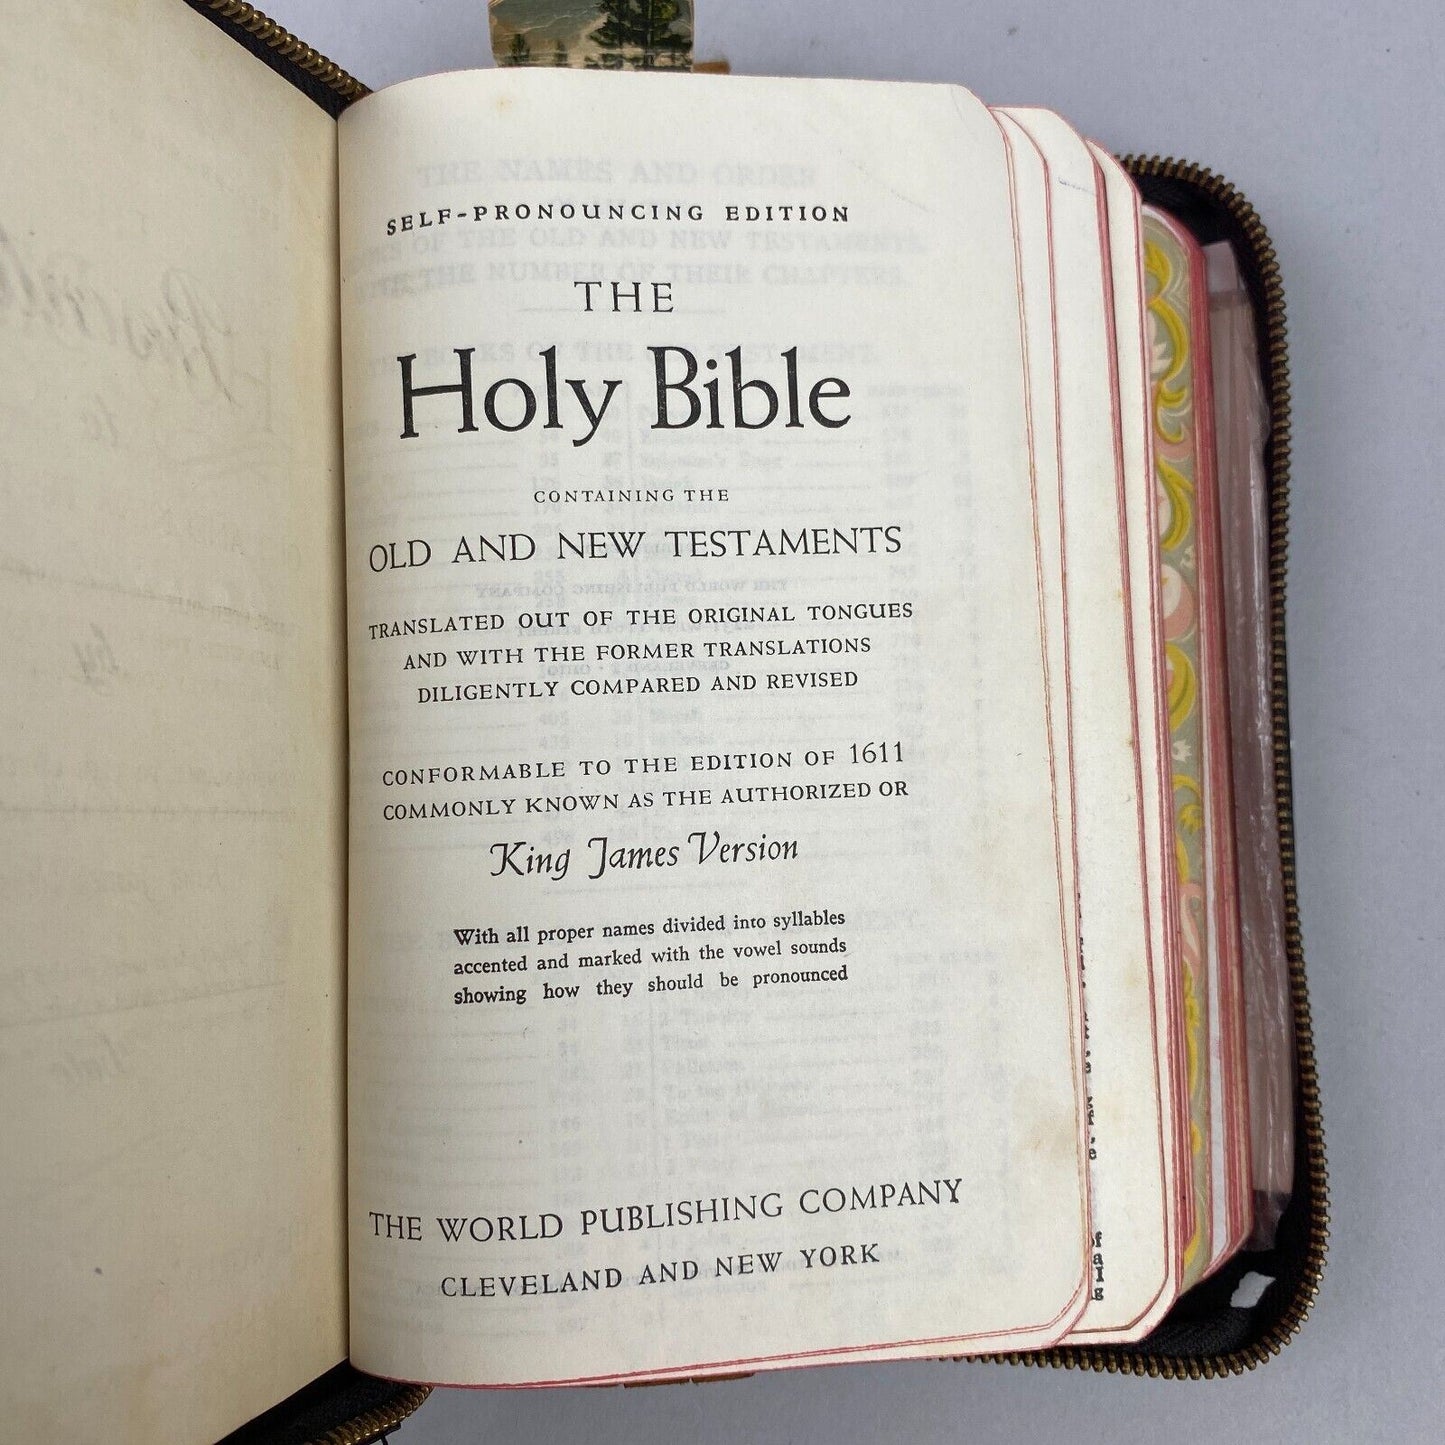 SELF-PRONOUNCING EDITION
THE
Holy Bible
CONTAINING THE
OLD AND NEW TESTAMENTS
TRANSLATED OUT OF THE ORIGINAL TONGUES
AND WITH THE FORMER TRANSLATIONS
DILIGENTLY COMPARED AND REVISED
CONFORMABLE TO THE EDITION OF 1611
COMMONLY KNOWN AS THE AUTHORIZED OR
King James Version
With all proper names divided into syllables
accented and marked with the vowel sounds
showing how they should be pronounced
THE WORLD PUBLISHING COMPANY
CLEVELAND AND NEW YORK